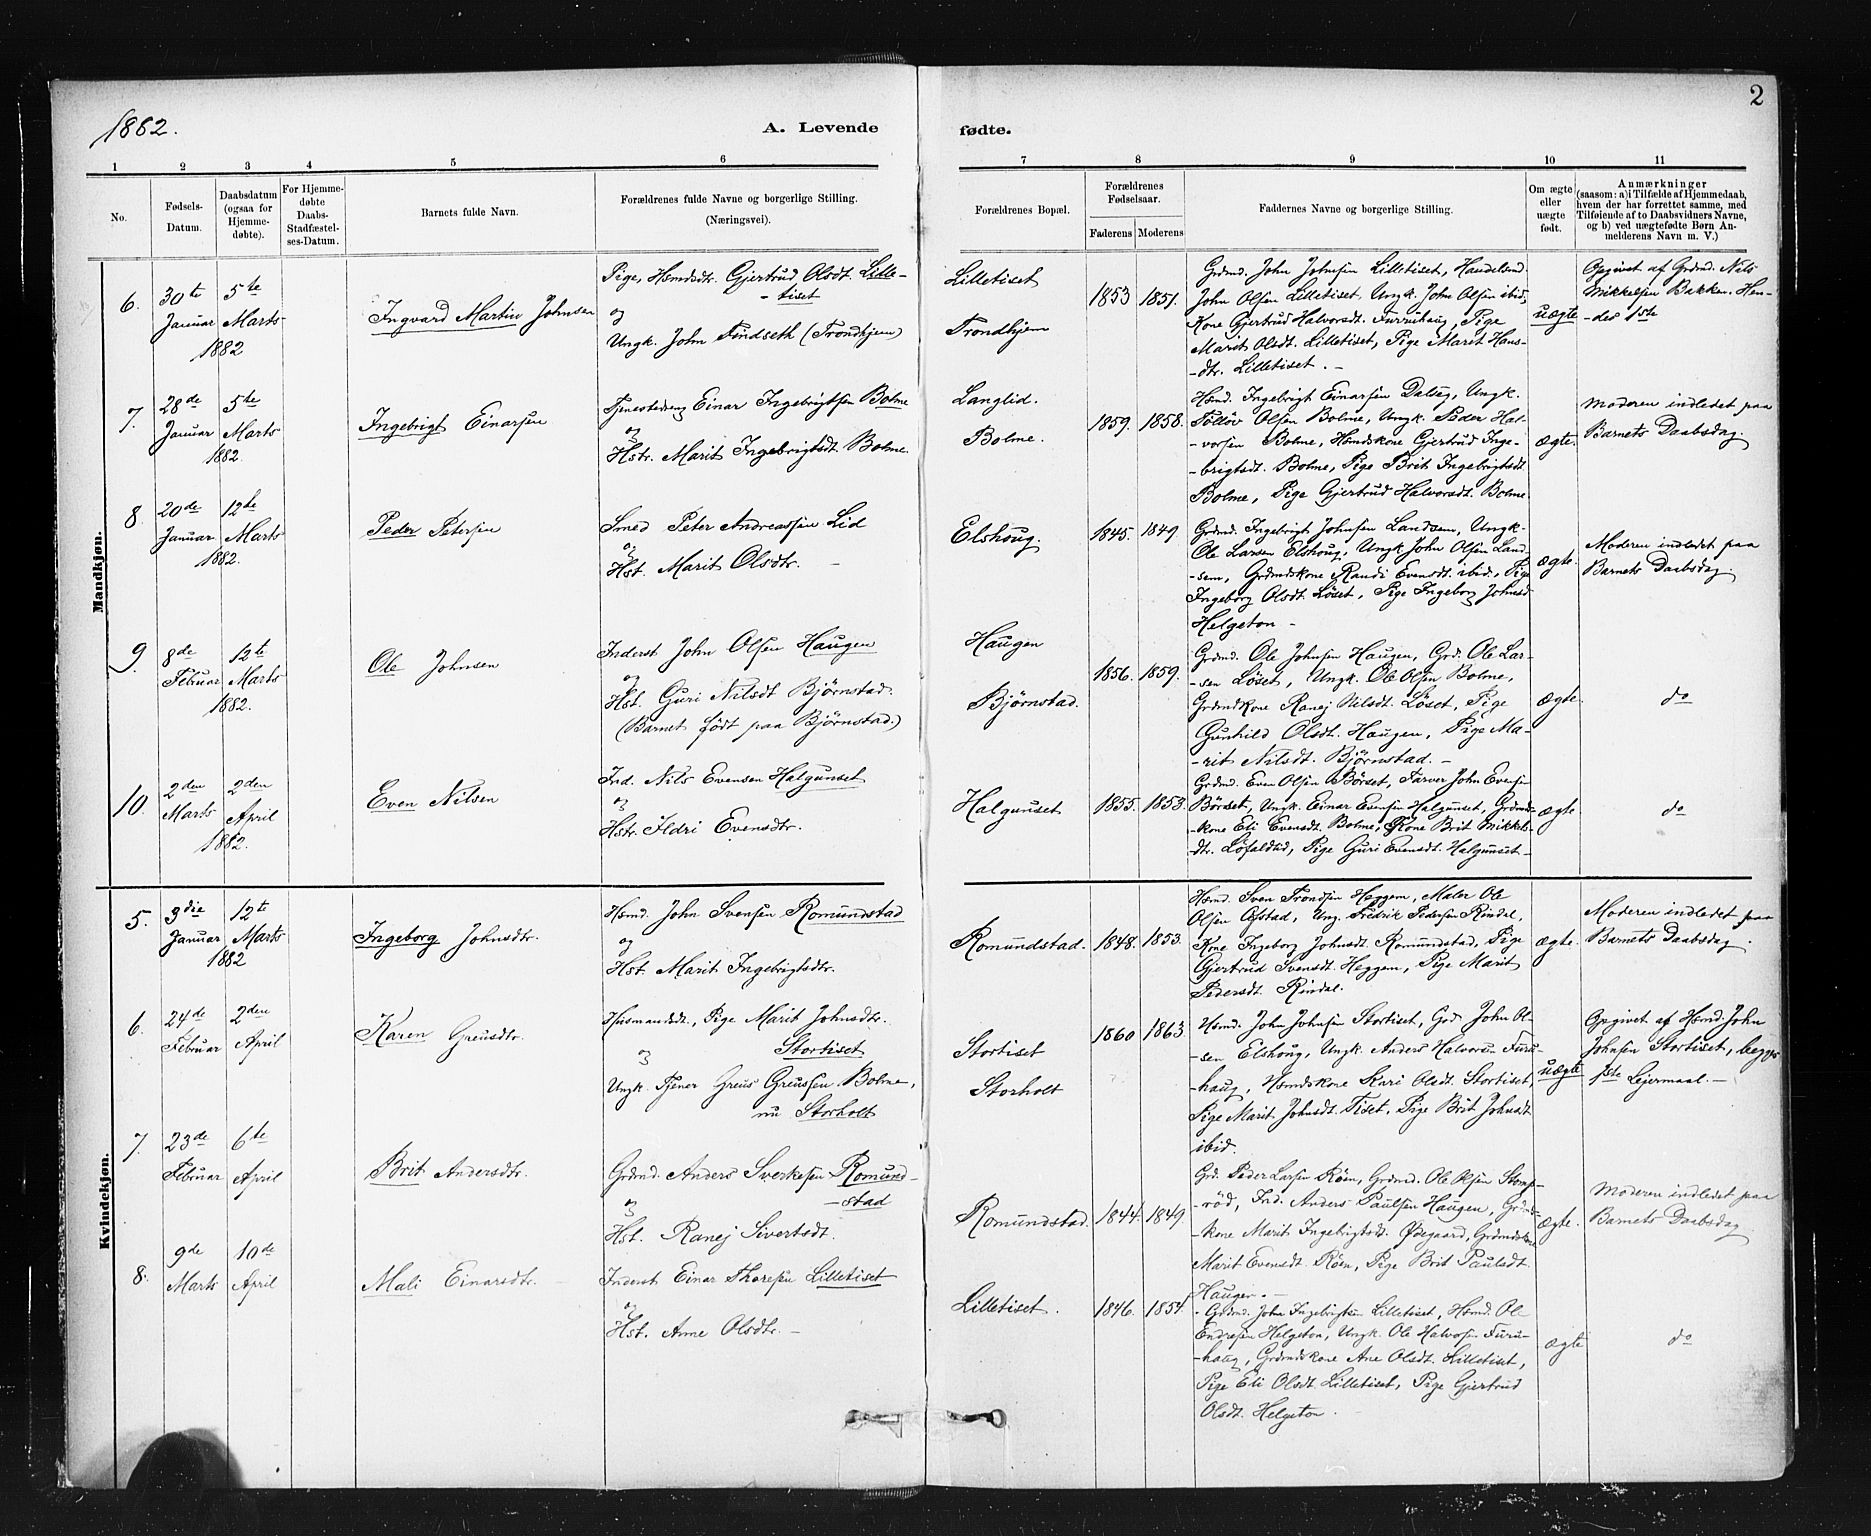 1882.
A. Levende
fødte.
2
1 2 3 4 5 6 7 8 9 10 11
No.
Fødsels-
Datum.
Daabsdatum
(ogsaa for
Hjemme-
døbte).
For Hjemme-
døbte
Daabs-
Stadfæstel-
ses-Datum.
Barnets fulde Navn.
Forældrenes fulde Navne og borgerlige Stilling.
(Næringsvei).
Forældrenes Bopæl.
Forældrenes
Fødselsaar.
Faderens Moderens
Faddernes Navne og borgerlige Stilling.
Om ægte
eller
uægte
født.
Anmærkninger
(saasom: a) i Tilfælde af Hjemmedaab,
hvem der har forrettet samme, med
Tilføiende af to Daabsvidners Navne,
og b) ved uægtefødte Børn An-
melderens Navn m. V.)
Mandkjøn.
6.
30te
Januar
5te
Marts
1882
Ingvard Martin Johnsen
Pige, Hsmdsdtr. Gjertrud Olsdt. Lille-
-tiset
og
Ungk. John Findseth (Trondhjem)
Lilletiset
Trondhjem
1853 1851.
Grdmd. John Johnsen Lilletiset, Handelsmd.
John Olsen Lilletiset, Ungk. John Olsen ibid,
Kone Gjertrud Halvorsdt. Furruhaug, Pige
Marit Olsdt. Lilletiset, Pige Marit Hans-
-dtr. Lilletiset. -
uægte
Opgivet af Grdmd. Nils
Mikkelsen Bakken. Hen-
-des 1ste
7.
28de
Januar
5te
Marts
1882.
Ingebrigt Einarsen
Tjenestedreng Einar Ingebrigtsen Bolme
og
Hstr. Marit Ingebrigtsdt. Bolme.
Langlid.
Bolme.
1859. 1858.
Hsmd. Ingebrigt Einarsen Dalseg, Ungk.
Tolløv Olsen Bolme, Ungk. Peder Hal-
-vorsen Bolme, Hsmdskone Gjertrud Inge-
-brigtsdt. Bolme, Pige Brit Ingebrigtsdt.
Bolme, Pige Gjertrud Halvorsdt. Bolme.
ægte.
Moderen indledet paa
Barnets Daabsdag.
8.
20de
Januar
12te
Marts
1882.
Peder Petersen
Smed Peter Andreassen Lid
og
Hst. Marit Olsdtr. -
Elshoug.
1845. 1849.
Grdmd. Ingebrigt Johnsen Landsem, Ungk.
Ole Larsen Elshoug, Ungk. John Olsen Land-
-sem, Grdmdskone Randi Evensdt. ibid., Pige
Ingeborg Olsdt. Løset, Pige Ingeborg Johnsd.
Helgeton -
ægte.
Moderen indledet paa
Barnets Daabsdag.
9.
8de
Februar
12te
Marts
1882.
Ole Johnsen
Inderst John Olsen Haugen
og
Hst. Guri Nilsdt. Bjørnstad.
(Barnet født paa Bjørnstad.)
Haugen
Bjørnstad.
1856. 1859.
Grdmd. Ole Johnsen Haugen, Grd. Ole Lar-
-sen Løset, Ungk. Ole Olsen Bolme,
Grdmdkone Ranej Nilsdt. Løset, Pige
Gunhild Olsdt. Haugen, Pige Ma-
-rit Nilsdt. Bjørnstad. -
ægte.
do
10.
2den
Marts
2den
April
1882.
Even Nilsen
Ind. Nils Evensen Halgunset
og
Hstr. Ildri Evensdtr.
Halgunset
1855. 1853.
Grdmd. Even Olsen Børset, Farver John Evensen
Børset, Ungk. Einar Evensen Halgunset, Grdmd-
-kone Eli Evensdt. Bolme, Kone Brit Mikkels-
-dtr. Løfaldlid, Pige Guri Evensdt. Halgunset -
ægte
do
Kvindekjøn.
5.
3die
Januar
12te
Marts
1882
Ingeborg Johnsdtr.
Hsmd. John Svensen Romundstad
og
Hst. Marit Ingebrigtsdtr.
Romundstad.
1848. 1853.
Hsmd. Sven Trondsen Heggem, Maler Ole
Olsen Opstad, Ung. Fredrik Pedersen Rindal,
Kone Ingeborg Johnsdt. Romundstad, Pige
Gjertrud Svensdt. Heggem, Pige Marit
Pedersdt. Rindal.
ægte.
Moderen indledet paa
Barnets Daabsdag.
6.
24de
Februar
2den
April
Karen Greusdtr.
Husmandsdt., Pige Marit Johnsdtr.
Stortiset
og
Ungk. Tjener Greus Greussen Bolme,
nu Storholt
Stortiset
Storholt
1860 1863.
Hsmd. John Johnsen Stortiset, Grd. John Ol-
-sen Elshoug, Ungk. Anders Halvorsen Furu-
-haug, Hsmdskone Kari Olsdt. Stortiset,
Pige Marit Johnsdt. Tiset, Pige Brit Johnsdt.
ibid.
uægte
Opgivet af Hsmd. John
Johnsen Stortiset, begges
1ste Lejermaal. -
7.
23de
Februar
6te
April
Brit Andersdtr.
Grdmd. Anders Sverkesen Romund-
-stad
og
Hst. Ranej Sivertsdt.
Romundstad.
1844. 1849.
Grd. Peder Larsen Røen, Grdmd. Ole Olsen Stomp-
-rød, Ind. Anders Paulsen Haugen, Grdmd-
-kone Marit Ingebrigtsdt. Ødegaard, Grdmdskone
Marit Evensdt. Røen, Pige Brit Paulsdt.
Haugen. -
ægte.
Moderen indledet paa
Barnets Daabsdag
8.
9de
Marts
10de
April
Mali Einarsdtr.
Inderst Einar Thoresen Lilletiset
og
Hst. Anne Olsdtr. -
Lilletiset.
1846. 1854.
Grdmd. John Ingebrigtsen Lilletiset, Hsmd. Ole
Endresen Helgeton, Ungk. Ole Halvorsen Furu-
-haug, Grdmdskone Ane Olsdt. Lilletiset,
Pige Eli Olsdt. Lilletiset, Pige Gjertrud
Olsdt. Helgeton.
ægte
do